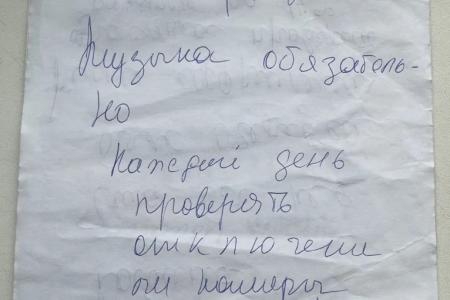 Музыка обязатель-
но
каждый день
проверять
отключены
ли камеры